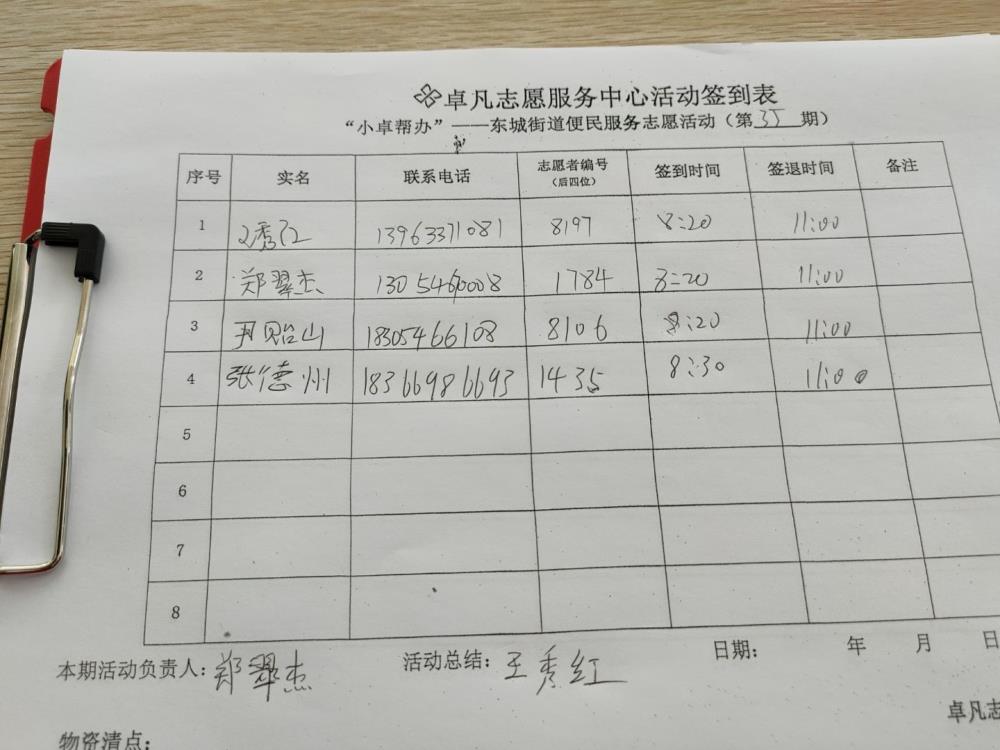 卓凡志愿服务中心活动签到表
“小卓帮办”——东城街道便民服务志愿活动（第35期）
序号 实名 联系电话 志愿者编号（后四位） 签到时间 签退时间 备注
1 王秀红 13963371081 8197 8:20 11:00
2 郑翠杰 13054660008 1784 8:20 11:00
3 贻山 18305466108 8106 8:20 11:00
4 张德州 18366986693 1435 8:30 11:00
5
6
7
8
本期活动负责人：郑翠杰 活动总结：王秀红 日期： 年 月 日
卓凡志
物资清点：